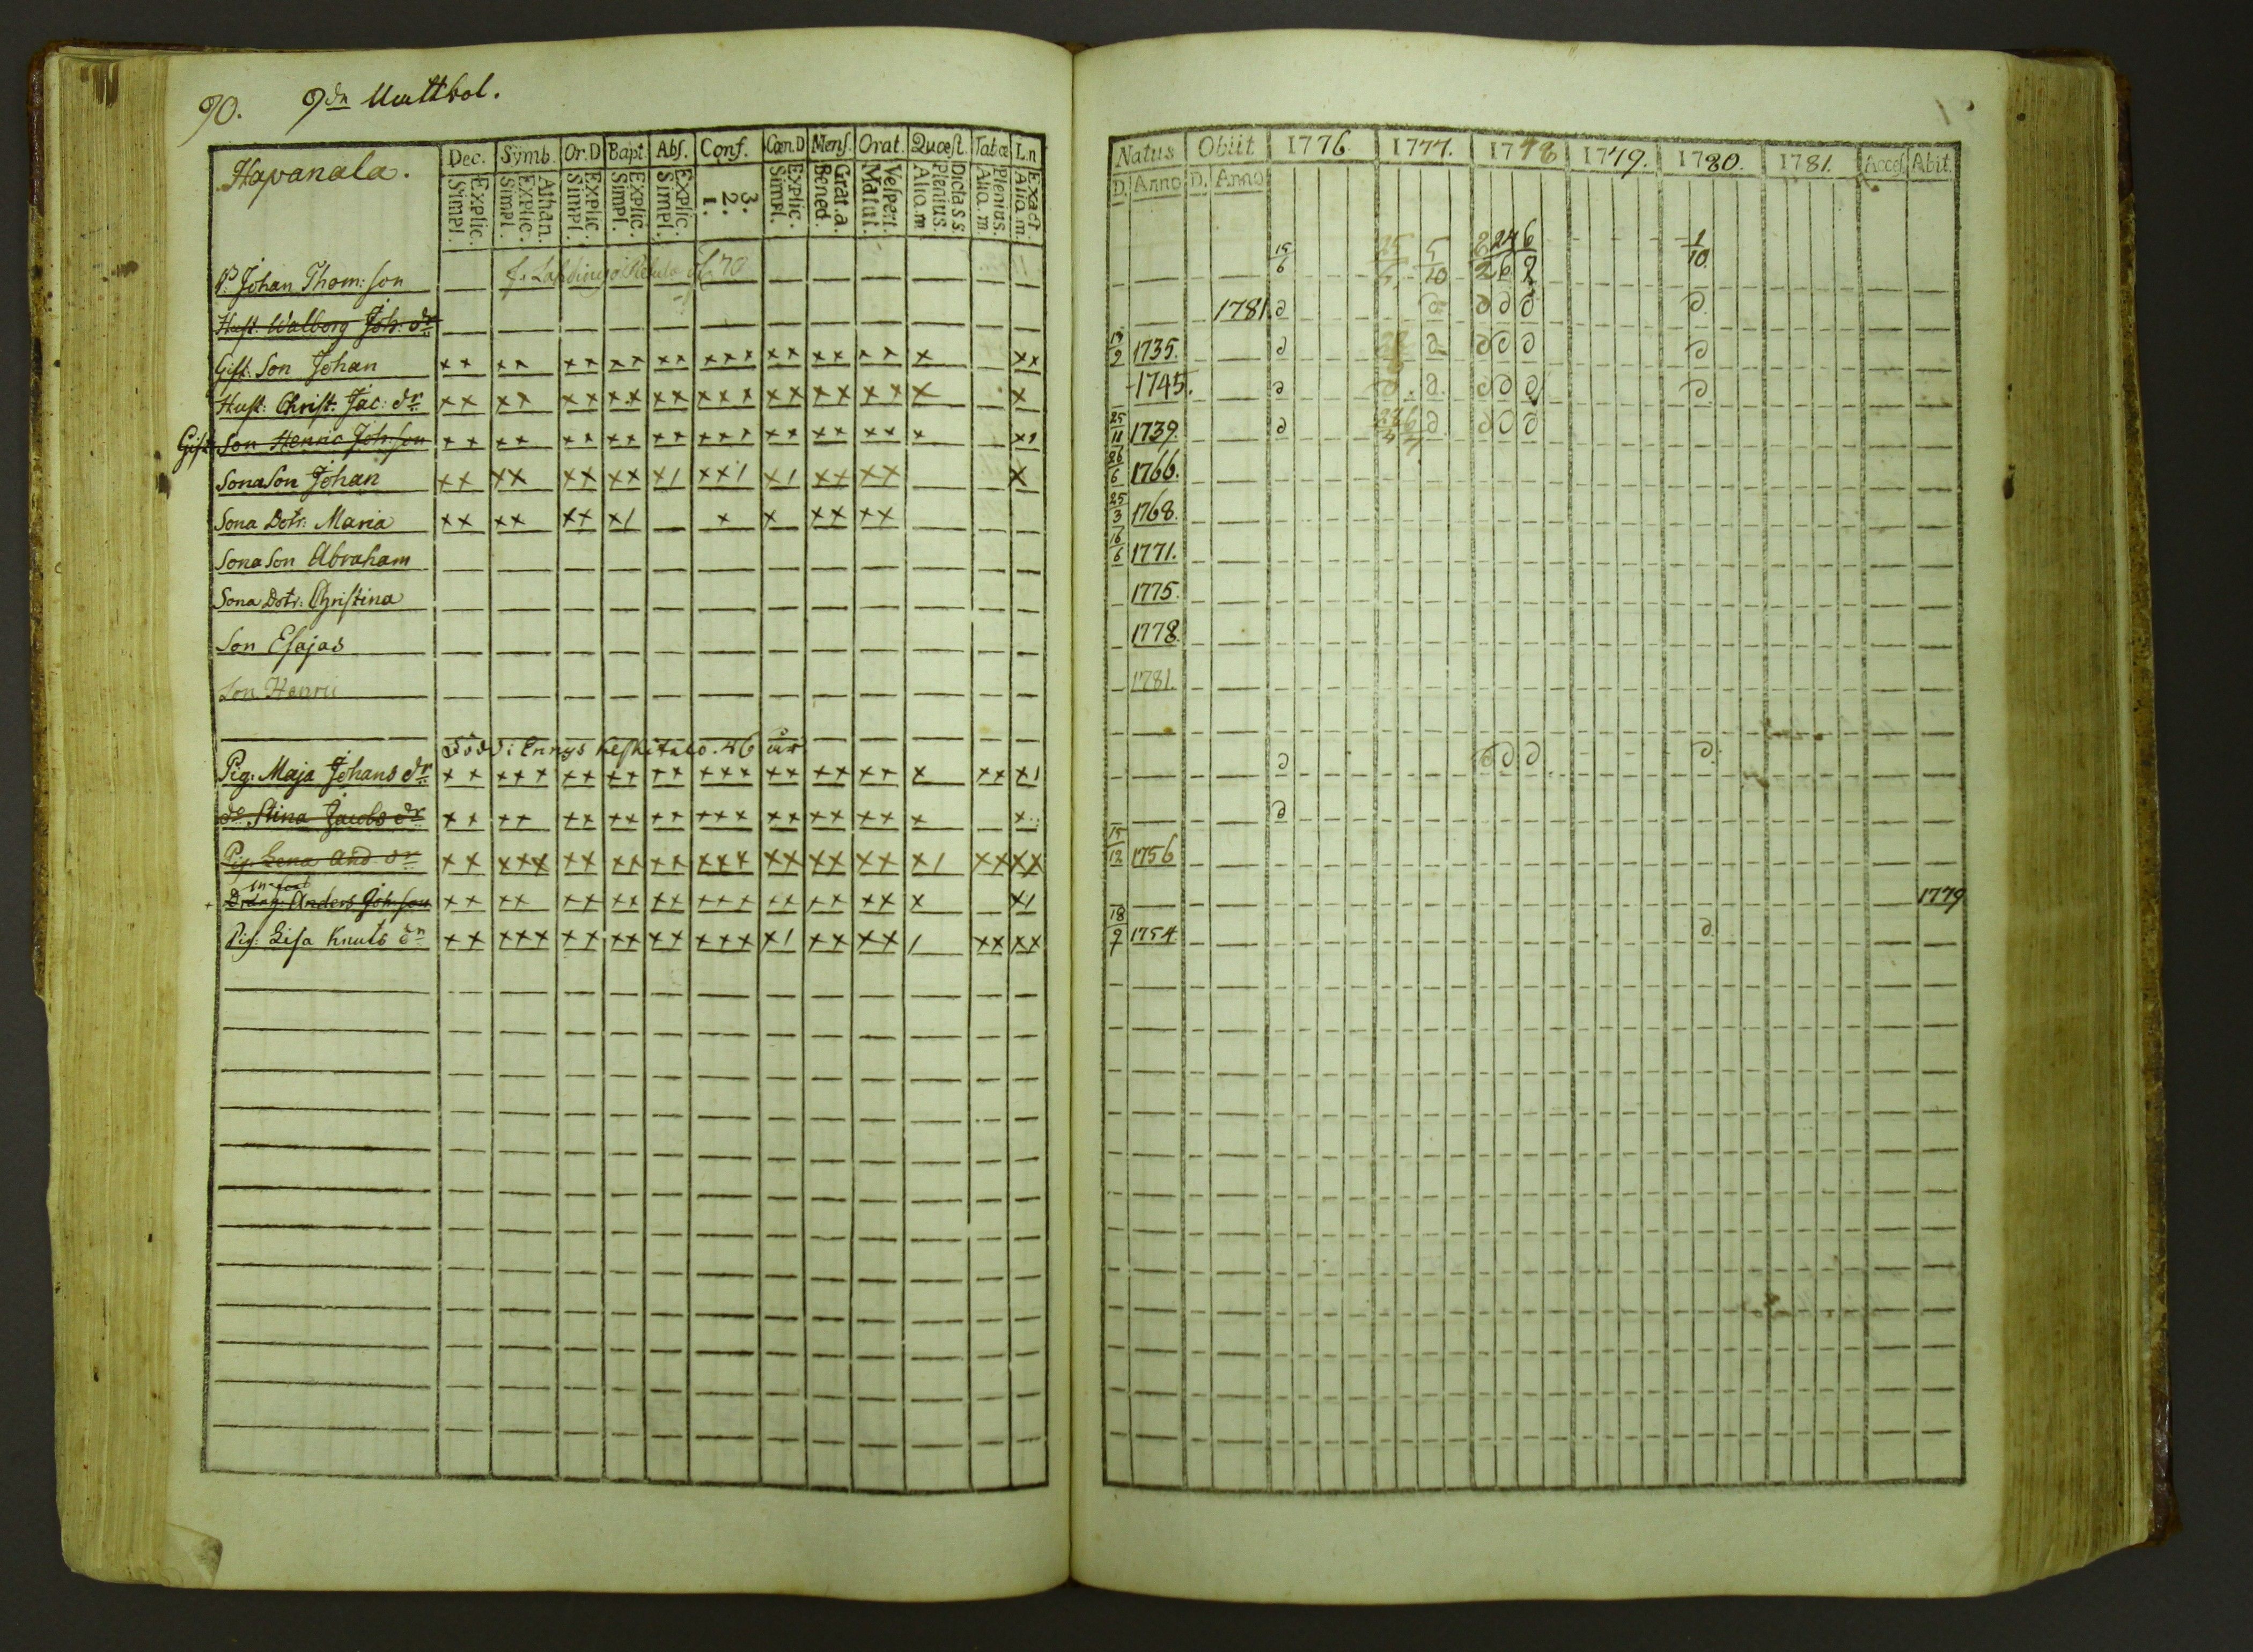 90. 9dn Uuttbol.
Havanala.
Dec. Symb. Or.D Bapt. Abs. Conf. Cœn.D Mens. Orat. Quœst. Tabœ Ln
Simpl. Explic. Simpl. Explic. Athan. Simpl. Explic. Simpl. Explic. Simpl. Explic. 1. 2. 3. Simpl. Explic. Bened. Grat.a. Matut. Vespert. Alio.m Plenius. Dicta S s. Alio.m Plenius. Alio.m. Exact.
Natus Obiit 1776. 1777. 1778 1779. 1780. 1781. Acces. Abit.
D. Anno D. Anno
Johan Thom: son 15/6 5/10 1/10
Hust. Walborg Joh: dr 1781 ∂ ∂ ∂ ∂ ∂ ∂
Gift. Son Johan ×× ×× ×× ×× ×× ××× ×× ×× ×× × ×× 19/2 1735. ∂ ∂ ∂ ∂ ∂ ∂
Hust: Christ. Jac: dr ×× ×× ×× ×× ×× ××× ×× ×× ×× × × 1745. ∂ ∂ ∂ ∂ ∂ ∂ ∂
Gift Son Henric Joh: son ×× ×× ×× ×× ×× ××× ×× ×× ×× × ×× 25/11 1739. ∂ ∂ ∂ ∂ ∂
Sona Son Johan ×× ×× ×× ×× ×/ ××/ ×/ ×× ×× × 26/6 1766.
Sona Dotr: Maria ×× ×× ×× ×/ × × ×× ×× 25/3 1768.
Sona Son Abraham 16/6 1771.
Sona Dotr: Christina 1775.
Son Esajas 1778.
Son Henric 1781.
död i Ennys Keskitalo. 46 år
Pig: Maja Johans dr ×× ××× ×× ×× ×× ××× ×× ×× ×× × ×× ×/ ∂ ∂ ∂ ∂ ∂
do Stina Jacobs dr ×× ×× ×× ×× ×× ××× ×× ×× ×× × × ∂
Pig. Lena And dr ×× ××× ×× ×× ×× ××× ×× ×× ×× ×/ ×× ×× 15/12 1756
Dräng Anders Joh: son ×× ×× ×× ×× ×× ××× ×× ×× ×× × ×/ 1779
Pig: Lisa Knuts dr ×× ××× ×× ×× ×× ××× ×/ ×× ×× / ×× ×× 18/9 1754 ∂